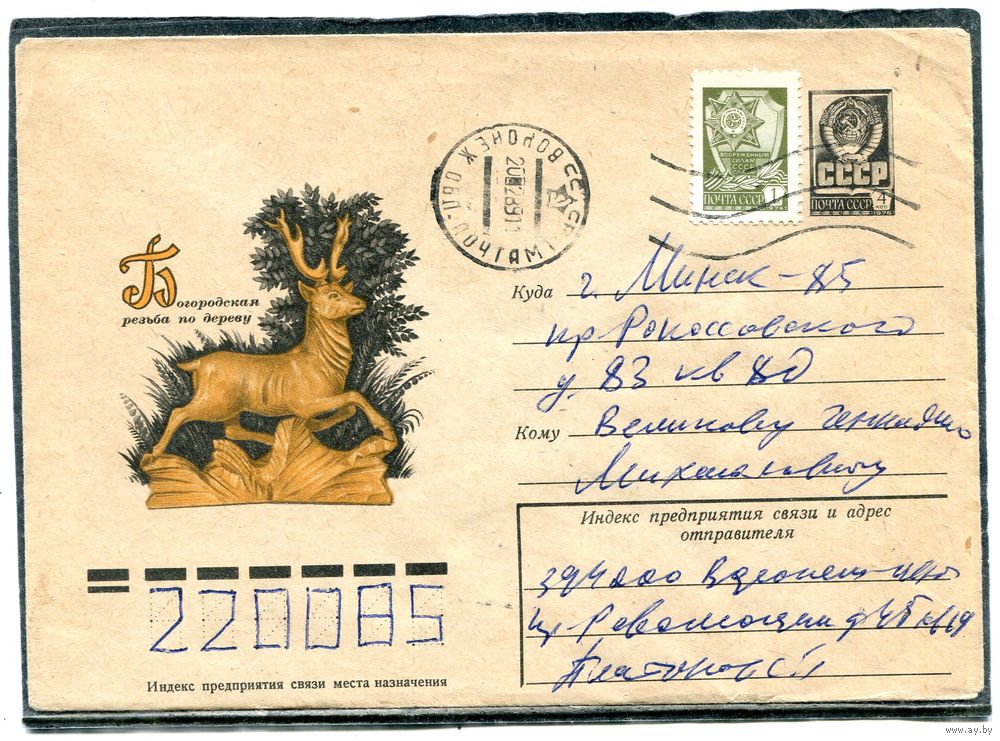 Богородская
резьба по дереву
СССР ПОЧТАМТ
ВОРОНЕЖ ОБЛ.
ВООРУЖЕННЫМ
СИЛАМ
СССР
ПОЧТА СССР 1
СССР
ПОЧТА СССР 4 КОП
1976
Куда г. Минск-85
пр Рокоссовского
д. 83 кв 80
Кому Великову Геннадию
Михайловичу
Индекс предприятия связи и адрес
отправителя
394000 Воронеж
пр Революции
220085
Индекс предприятия связи места назначения
www.ay.by